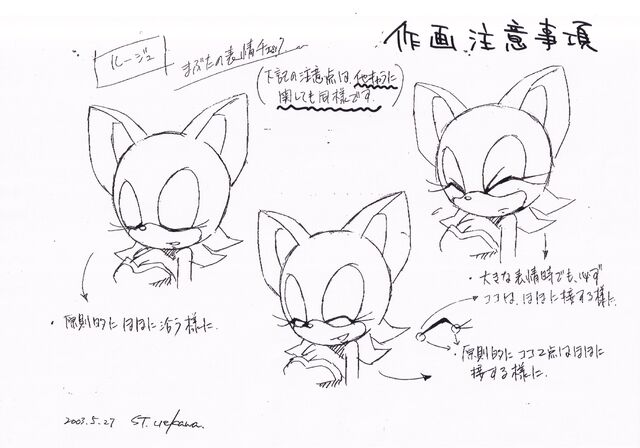 作画注意事項
ルージュ
まぶたの表情チェック
(下記の注意点は他キャラに
関しても同様です)
・原則的にほほに沿う様に.
・大きな表情時でも、必ず
ココは、ほほに接する様に.
・原則的にココ2点はほほに
接する様に.
2003.5.27 ST.Uekawa.